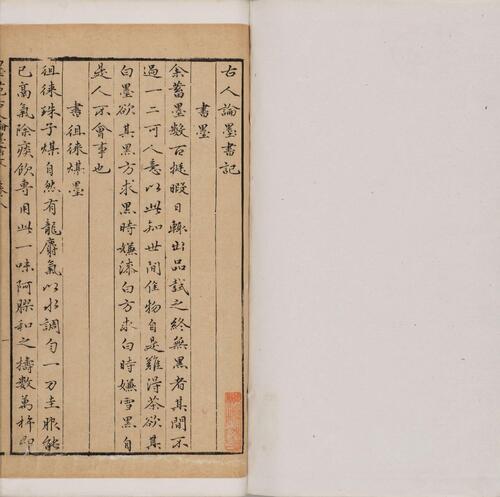 古人論墨書記
書墨
余蓄墨數百挺暇日輒出品試之終無黑者其間不
過一二可人意以此知世間佳物自是難得茶欲其
白墨欲其黑方求黑時嫌漆白方求白時嫌雪黑自
是人不會事也
書徂徠煤墨
徂徠珠子煤自然有龍麝氣以水調勻一刀圭服能
已鬲氣除痰飲專用此一味阿膠和之擣數萬杵即